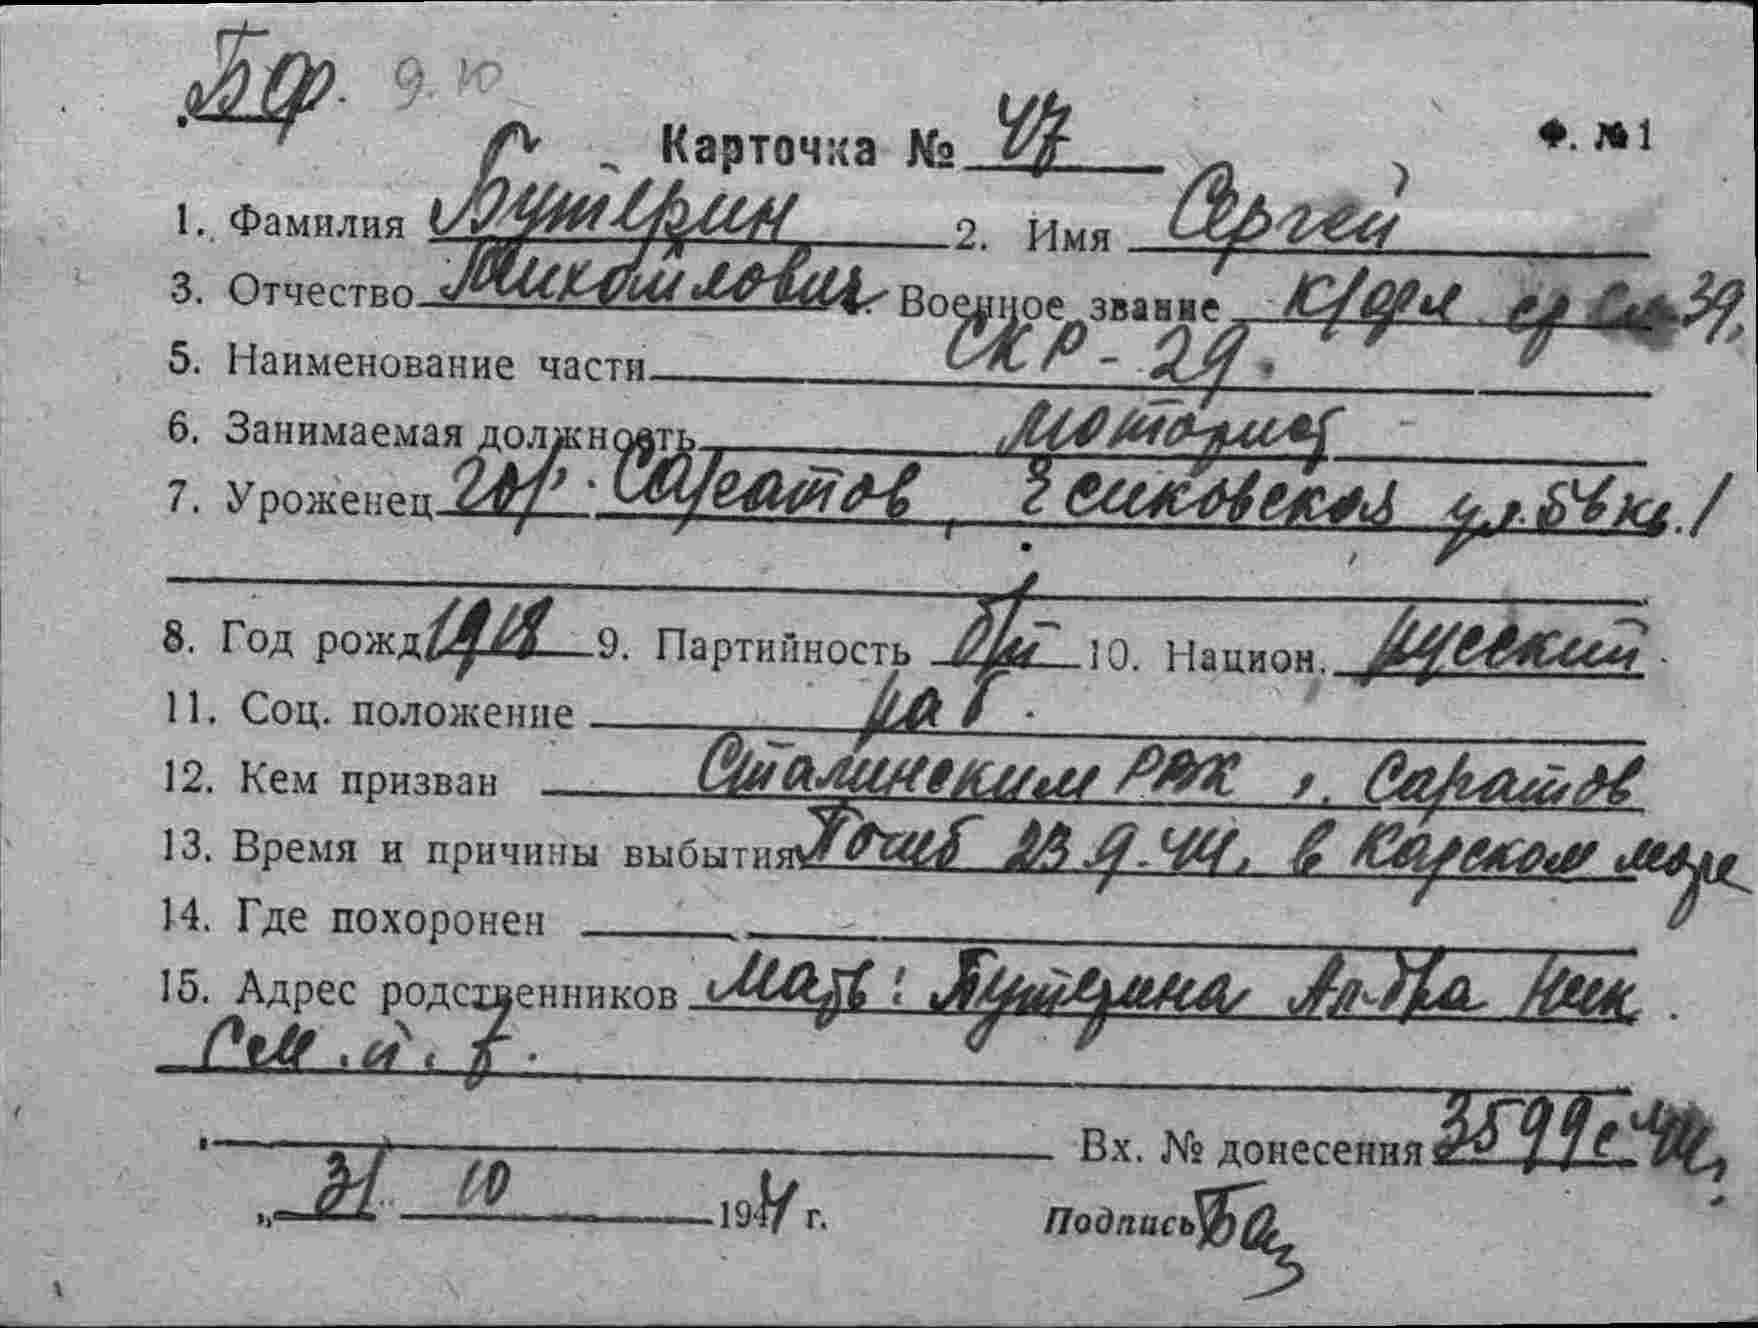 БФ. 9.10
Карточка № 47 Ф. №1
1. Фамилия Бутерин 2. Имя Сергей
3. Отчество Михайлович. Военное звание к/фл ср сл 39,
5. Наименование части СКР-29.
6. Занимаемая должность моторист
7. Уроженец гор. Саратов, ул. кв. 1
8. Год рожд 1918 9. Партийность б/п 10. Национ. русский
11. Соц. положение раб.
12. Кем призван Сталинским РВК г. Саратов
13. Время и причины выбытия Погиб 23.9.44. в Карском море
14. Где похоронен
15. Адрес родственников Мать: Бутерина Ал-дра Ник.
см. п. 7.
Вх. № донесения 3599с 44г
„31 10 1944 г. Подпись